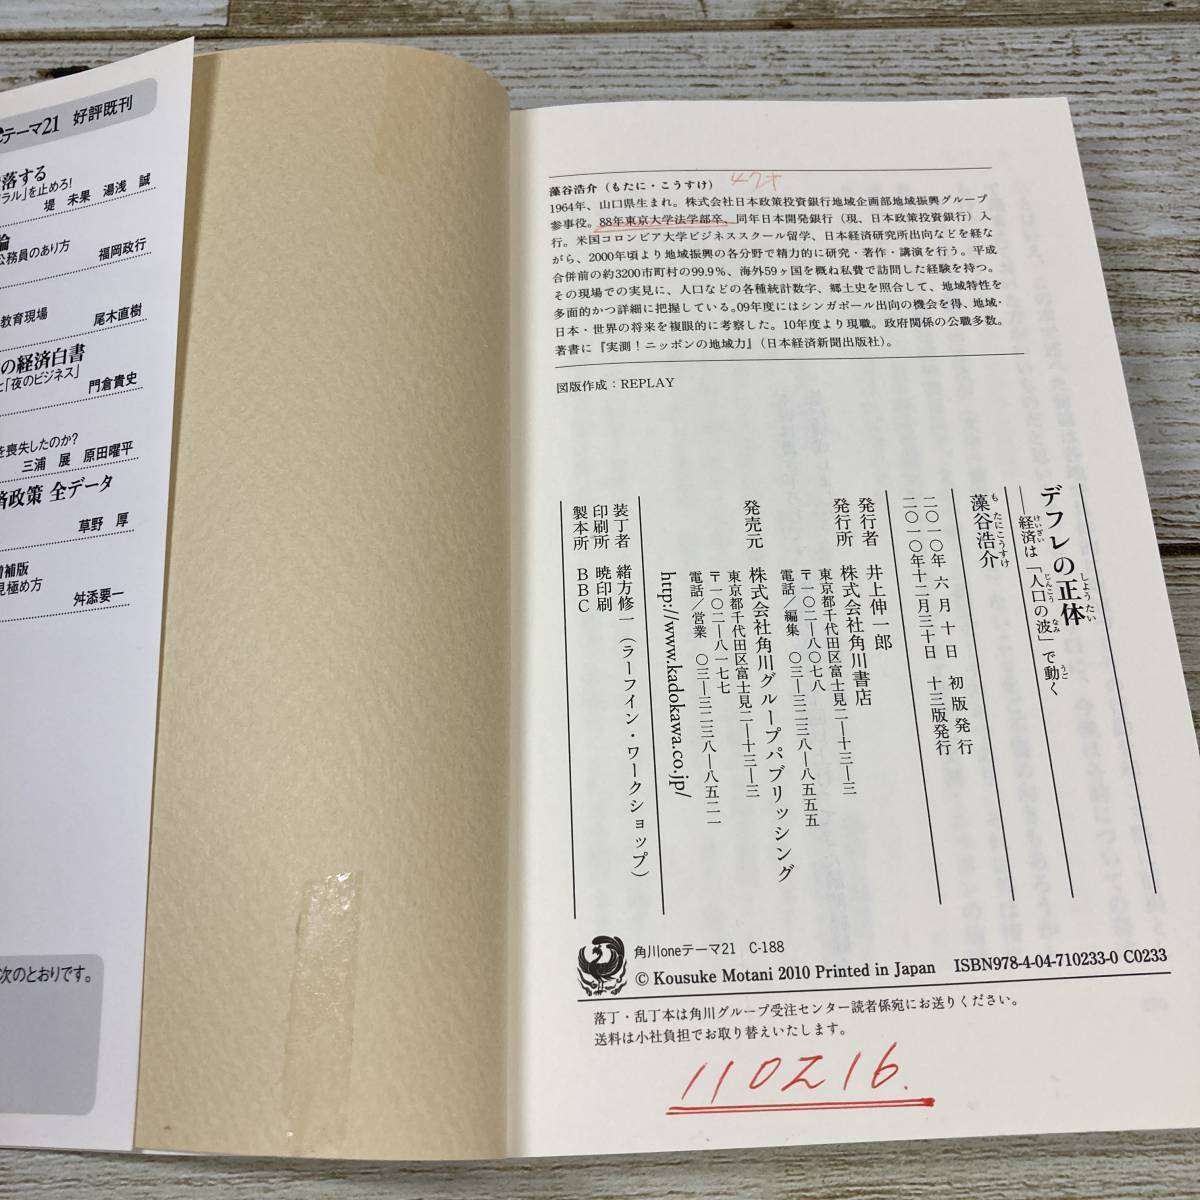 テーマ21 好評既刊
落する
ラル」を止めろ!
堤 未果 湯浅 誠
論
公務員のあり方
福岡政行
教育現場
尾木直樹
の経済白書
と「夜のビジネス」
門倉貴史
を喪失したのか?
三浦 展 原田曜平
済政策 全データ
草野 厚
増補版
見極め方
舛添要一
次のとおりです。
藻谷浩介(もたに・こうすけ) 47才
1964年、山口県生まれ。株式会社日本政策投資銀行地域企画部地域振興グループ
参事役。88年東京大学法学部卒、同年日本開発銀行(現、日本政策投資銀行)入
行。米国コロンビア大学ビジネススクール留学、日本経済研究所出向などを経な
がら、2000年頃より地域振興の各分野で精力的に研究・著作・講演を行う。平成
合併前の約3200市町村の99.9%、海外59ヶ国を概ね私費で訪問した経験を持つ。
その現場での実見に、人口などの各種統計数字、郷土史を照合して、地域特性を
多面的かつ詳細に把握している。09年度にはシンガポール出向の機会を得、地域・
日本・世界の将来を複眼的に考察した。10年度より現職。政府関係の公職多数。
著書に『実測!ニッポンの地域力』(日本経済新聞出版社)。
図版作成:REPLAY
デフレの正体
しょうたい
――経済は「人口の波」で動く
けいざい じんこう なみ うご
藻谷浩介
も たにこうすけ
二〇一〇年 六 月 十 日 初 版 発 行
二〇一〇年十二月三十日 十三版発行
発行者 井上伸一郎
発行所 株式会社角川書店
東京都千代田区富士見二―十三―三
〒一〇二―八〇七八
電話/編集 〇三―三二三八―八五五五
発売元 株式会社角川グループパブリッシング
東京都千代田区富士見二―十三―三
〒一〇二―八一七七
電話/営業 〇三―三二三八―八五二一
http://www.kadokawa.co.jp/
装丁者 緒方修一(ラーフイン・ワークショップ)
印刷所 暁印刷
製本所 BBC
角川oneテーマ21 C-188
© Kousuke Motani 2010 Printed in Japan ISBN978-4-04-710233-0 C0233
落丁・乱丁本は角川グループ受注センター読者係宛にお送りください。
送料は小社負担でお取り替えいたします。
110216.